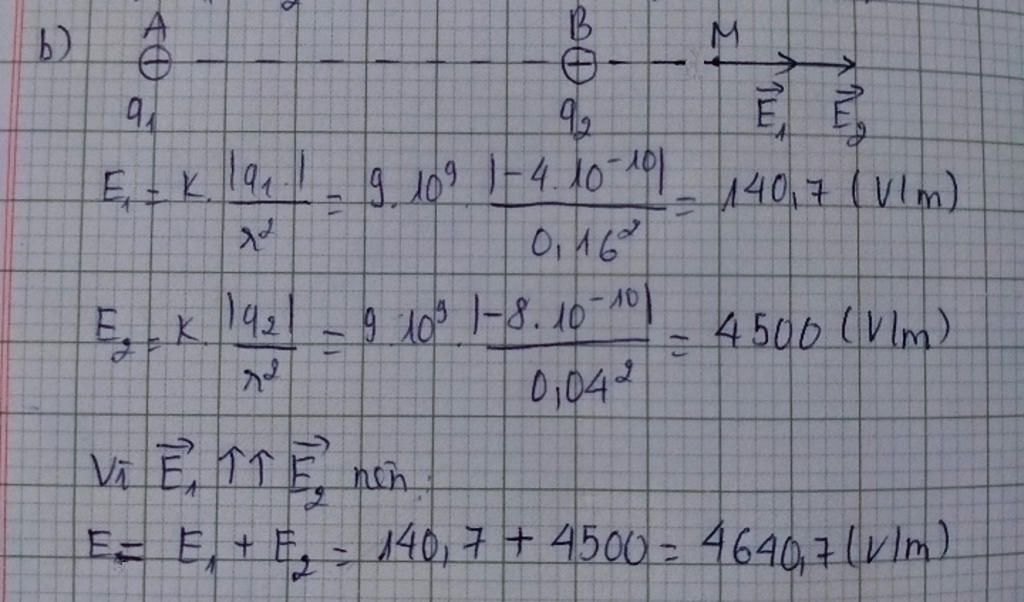 b) A B M
⊖ ⊖
q₁ q₂ E⃗₁ E⃗₂
E₁ = k. |q₁.|/r² = 9.10⁹. |-4.10⁻¹⁰|/0,16² = 140,7 (V/m)
E₂ = k. |q₂|/r² = 9.10⁹. |-8.10⁻¹⁰|/0,04² = 4500 (V/m)
Vì E⃗₁ ↑↑ E⃗₂ nên:
E = E₁ + E₂ = 140,7 + 4500 = 4640,7 (V/m)